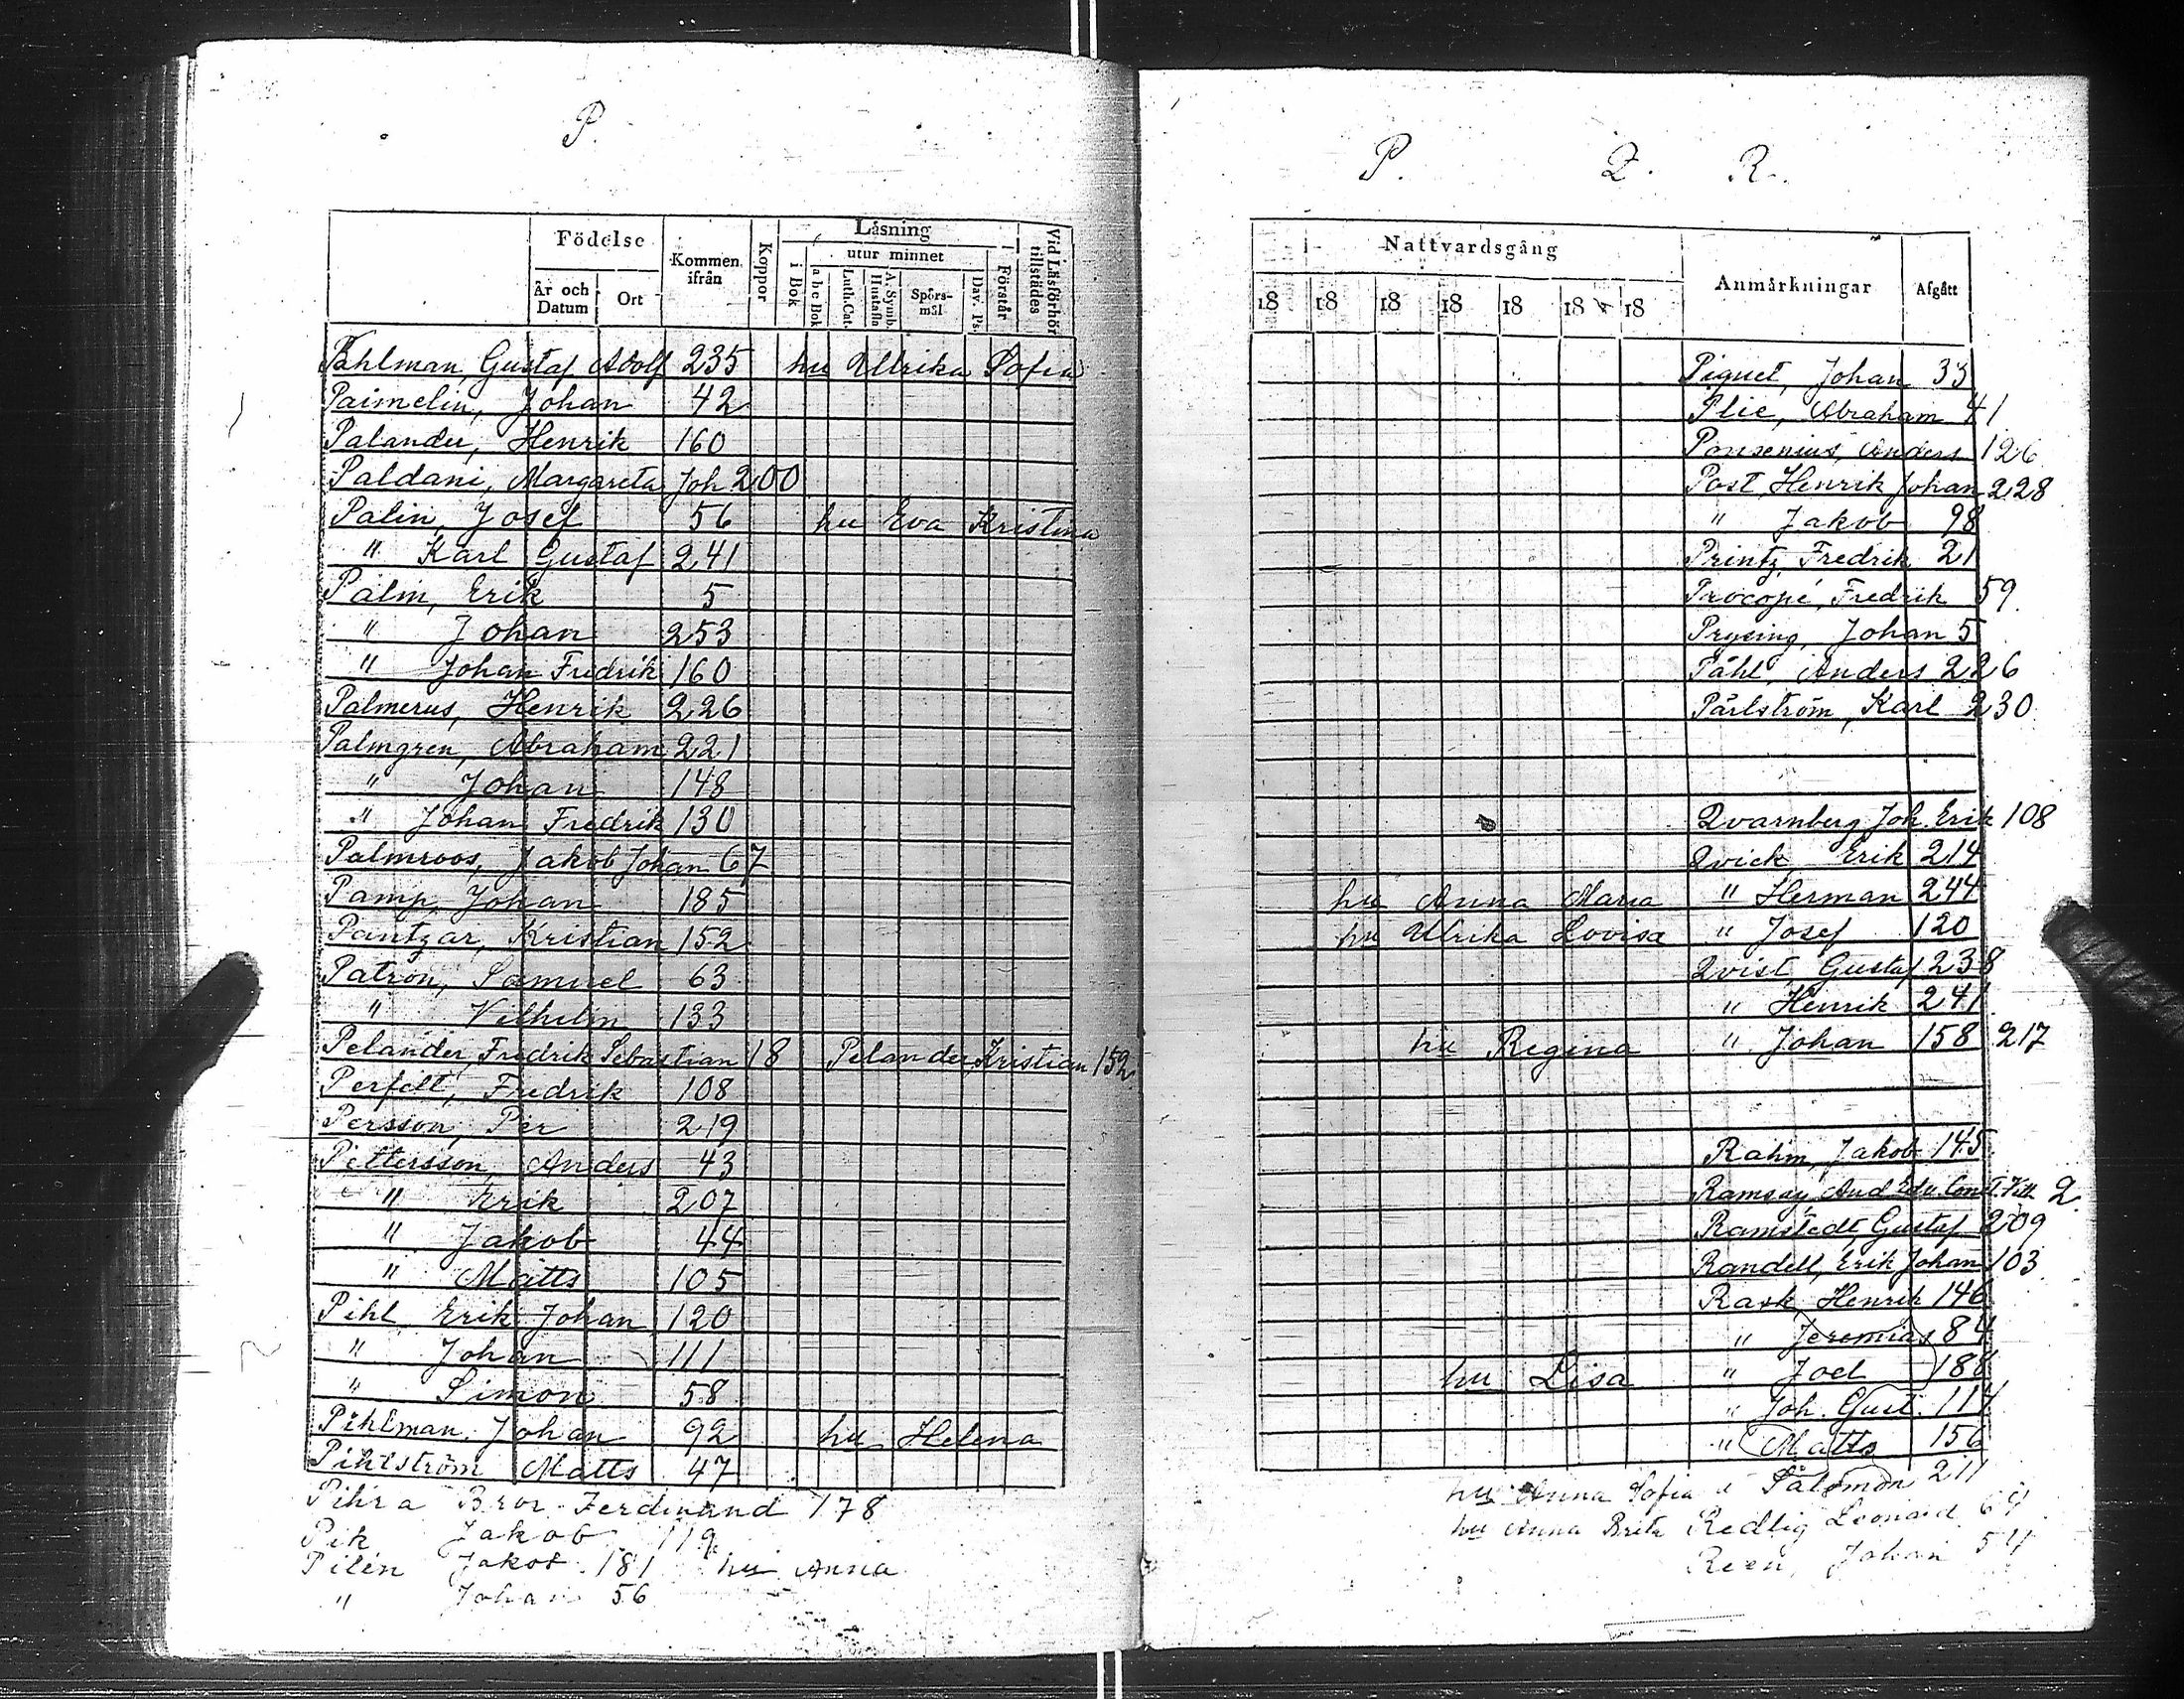 P.
Födelse
År och Datum
Ort
Kommen ifrån
Koppor
Läsning
i Bok
utur minnet
a b c Bok
Luth. Cat.
A. Symb. Hustafla
Spörsmål
Dav. Ps.
Förstår
Vid Läsförhör tillstädes
Påhlman, Gustaf Adolf 235 hu Ullrika Sofia
Paimelin, Johan 42
Palander, Henrik 160
Paldani, Margareta Joh 200
Palin, Josef 56 hu Eva Kristina
" Karl Gustaf 241
Palm, Erik 5
" Johan 253
" Johan Fredrik 160
Palmerus, Henrik 226
Palmgren, Abraham 221
" Johan 148
" Johan Fredrik 130
Palmroos, Jakob Johan 67
Pamp, Johan 185
Pantzar, Kristian 152
Patron, Samuel 63
" Vilhelm 133
Pelander, Fredrik Sebastian 18 Pelander, Kristian 152
Perfelt, Fredrik 108
Persson, Per 219
Pettersson, Anders 43
" Erik 207
" Jakob 44
" Matts 105
Pihl Erik Johan 120
" Johan 111
" Simon 58
Pihlman, Johan 92 hu Helena
Pihlström Matts 47
Pihra Bror Ferdinand 178
Pik Jakob 119
Pilén Jakob 181 hu Anna
" Johan 56
P. Q. R.
Nattvardsgång
Anmärkningar
Afgått
18 18 18 18 18 18 18
Piquet, Johan 33
Plie, Abraham 41
Ponsenius, Anders 126
Post, Henrik Johan 228
" Jakob 98
Printz, Fredrik 21
Procopé, Fredrik 59
Prysing, Johan 5
Påhl, Anders 226
Pärlström, Karl 230
Qvarnberg Joh. Erik 108
Qvick Erik 214
hu Anna Maria " Herman 244
hu Ulrika Lovisa " Josef 120
Qvist, Gustaf 238
" Henrik 241
hu Regina " Johan 158 217
Rahm, Jakob 145
Ramsay, And Edv. Const. Vilh. 2
Ramstedt, Gustaf 209
Randell, Erik Johan 103
Rask, Henrik 146
" Jeremias 84
hu Lisa " Joel 188
" Joh. Gust. 114
" Matts 156
hu Anna Sofia " Salomon 211
hu Anna Brita Redlig Leonard 64
Reen, Johan 54